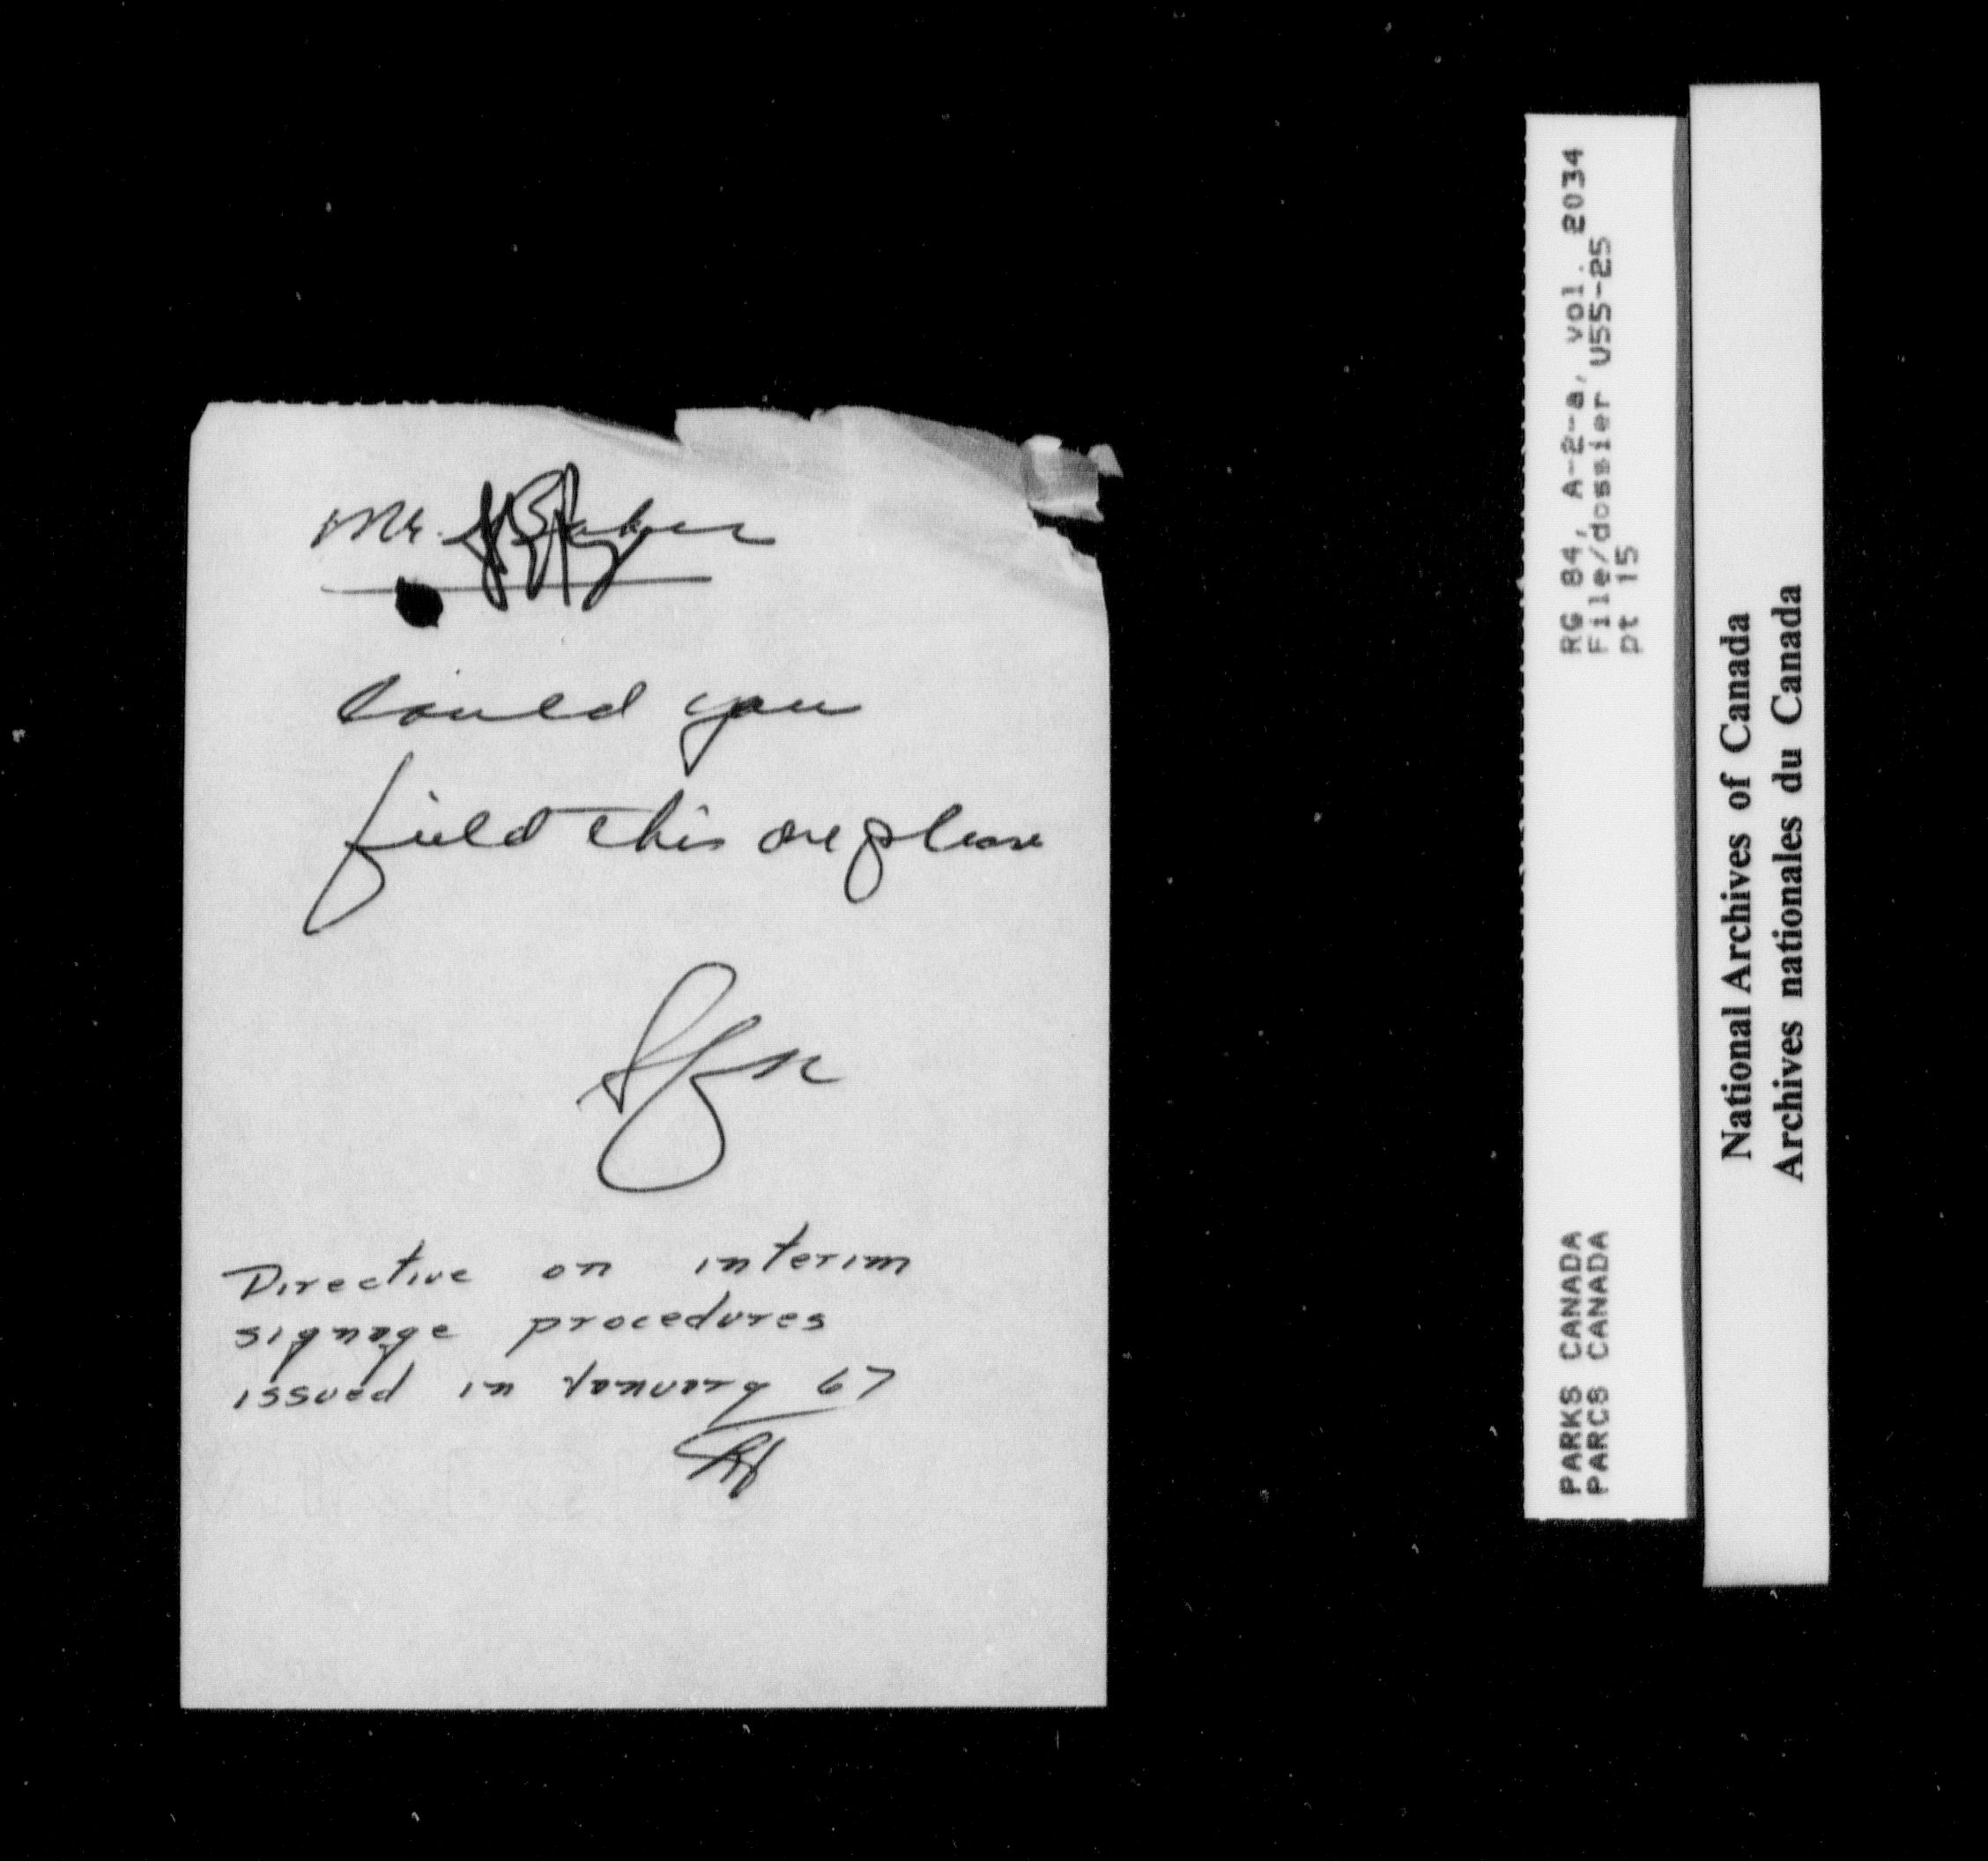 Mr.
Could you
field this one please
Directive on interim
signage procedures
issued in January 67
RG 84, A-2-a, vol. 2034
File/dossier U55-25
pt 15
PARKS CANADA
PARCS CANADA
National Archives of Canada
Archives nationales du Canada